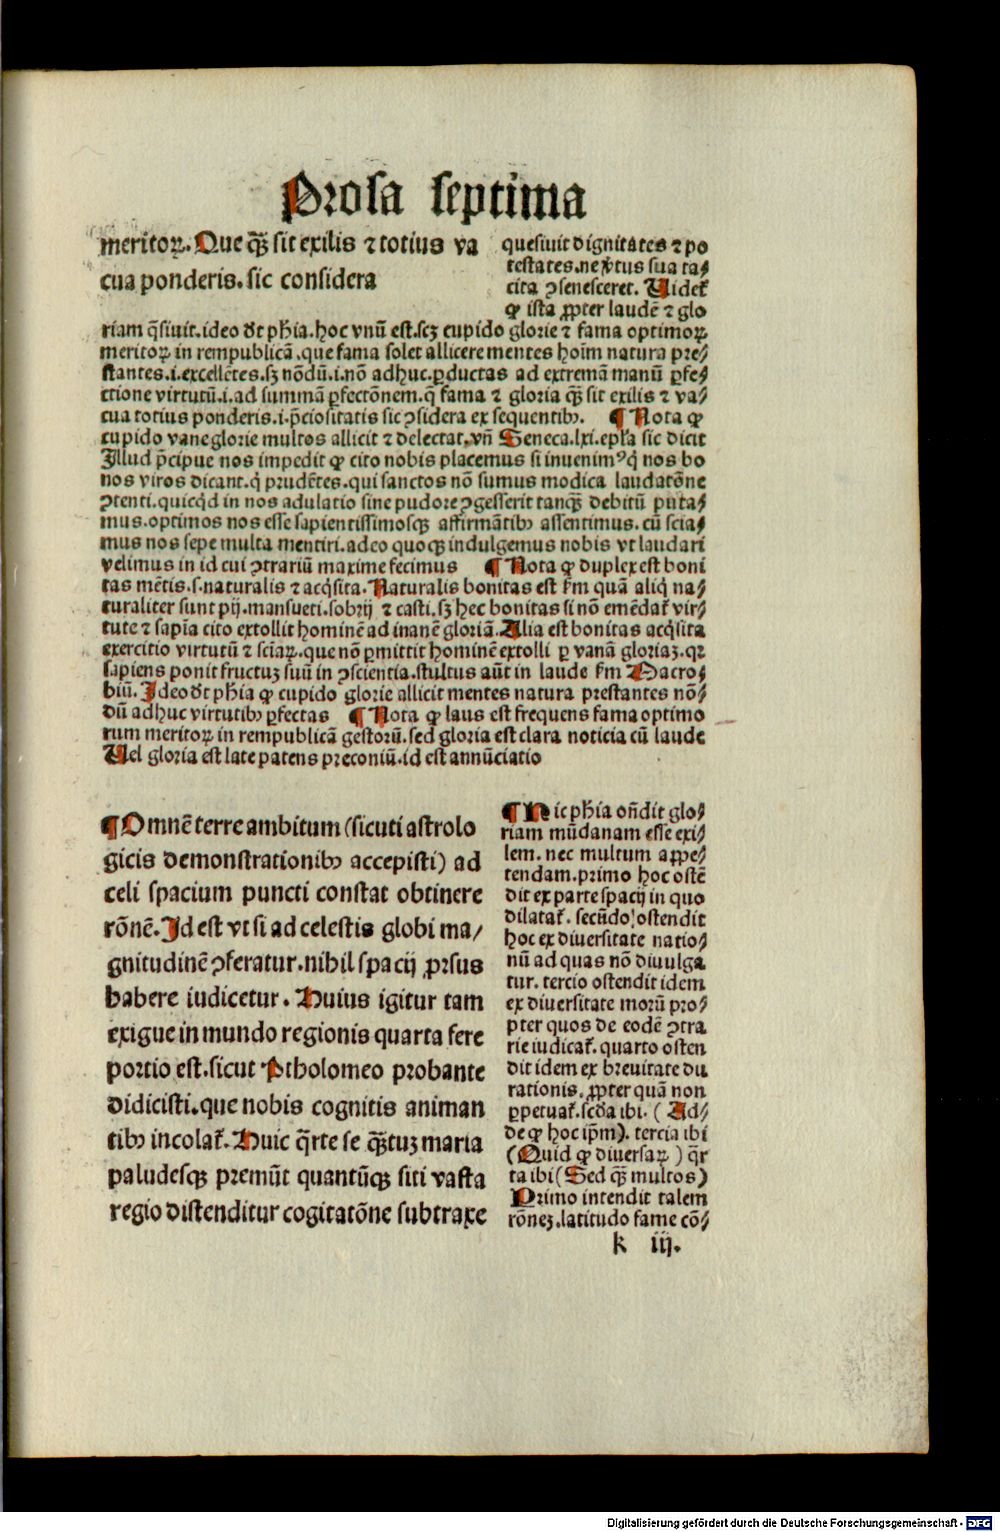 Prosa septima
meritoꝝ. Que qꝫ̃ sit exilis ⁊ totius va
cua ponderis. sic considera
quesiuit dignitates ⁊ po
testates. ne v̾tus sua ta⸗
cita ꝯsenesceret. Uidet᷑
ꝙ ista ꝓpter laudẽ ⁊ glo
riam q̃siuit. ideo dt̃ phĩa. hoc vnũ est. scꝫ cupido glorie ⁊ fama optimoꝝ
meritoꝝ in rempublicã. que fama solet allicere mentes hoĩm natura pre⸗
stantes. i. excellẽtes. sꝫ nõdũ. i. nõ adhuc. ꝑductas ad extremã manũ ꝑfe⸗
ctione virtutũ. i. ad summã ꝑfectõnem. q̃ fama ⁊ gloria qꝫ̃ sit exilis ⁊ va⸗
cua totius ponderis. i. p̃ciositatis sic ꝯsidera ex sequentibꝰ. ¶ Nota ꝙ
cupido vane glorie multos allicit ⁊ delectat. vñ Seneca. lxi. epl̃a sic dicit
Illud p̃cipue nos impedit ꝙ cito nobis placemus si inuenimꝰ q̇ nos bo
nos viros dicant. q̇ prudẽtes. qui sanctos nõ sumus modica laudatõne
ꝯtenti. quicq̇d in nos adulatio sine pudore ꝯgesserit tanqꝫ̃ debitũ puta⸗
mus. optimos nos esse sapientissimosqꝫ affirmãtibꝰ assentimus. cũ scia⸗
mus nos sepe multa mentiri. adeo quoqꝫ indulgemus nobis vt laudari
velimus in id cui ꝯtrariũ maxime fecimus ¶ Nota ꝙ duplex est boni
tas mẽtis. s. naturalis ⁊ acq̇sita. Naturalis bonitas est fm̃ quã aliq̇ na⸗
turaliter sunt pij. mansueti. sobrij ⁊ casti. sꝫ hec bonitas si nõ emẽdat᷑ vir⸗
tute ⁊ sapĩa cito extollit hominẽ ad inanẽ gloriã. Alia est bonitas acq̇sita
exercitio virtutũ ⁊ sciẽaꝝ. que nõ ꝑmittit hominẽ extolli ꝑ vanã gloriaꝫ. qꝛ
sapiens ponit fructuꝫ suũ in ꝯscientia. stultus aũt in laude fm̃ Macro⸗
biũ. Ideo dt̃ phĩa ꝙ cupido glorie allicit mentes natura prestantes nõ⸗
dũ adhuc virtutibꝰ ꝑfectas ¶ Nota ꝙ laus est frequens fama optimo
rum meritoꝝ in rempublicã gestorũ. sed gloria est clara noticia cũ laude
Uel gloria est late patens preconiũ. id est annũciatio
¶ Omnẽ terre ambitum (sicuti astrolo
gicis demonstrationibꝰ accepisti) ad
celi spacium puncti constat obtinere
rõnẽ. Id est vt si ad celestis globi ma⸗
gnitudinẽ ꝯferatur. nihil spacij ꝓrsus
habere iudicetur. Huius igitur tam
exigue in mundo regionis quarta fere
portio est. sicut Ptholomeo probante
didicisti. que nobis cognitis animan
tibꝰ incolat᷑. Huic q̃rte se qꝫ̃tuꝫ maria
paludesqꝫ premũt quantũqꝫ siti vasta
regio distenditur cogitatõne subtraxe
¶ Hic phĩa oñdit glo⸗
riam mũdanam esse exi⸗
lem. nec multum appe⸗
tendam. primo hoc ostẽ
dit ex parte spacij in quo
dilatat᷑. secũdo ostendit
hoc ex diuersitate natio⸗
nũ ad quas nõ diuulga
tur. tercio ostendit idem
ex diuersitate morũ pro⸗
pter quos de eodẽ ꝯtra
rie iudicat᷑. quarto osten
dit idem ex breuitate du
rationis. ꝓpter quã non
ꝑpetuat᷑. scd̃a ibi. (Ad⸗
de ꝙ hoc ip̃m). tercia ibi
(Quid ꝙ diuersaꝝ) q̃r
ta ibi (Sed qꝫ̃ multos)
Primo intendit talem
rõneꝫ. latitudo fame cõ⸗
k iij.
Digitalisierung gefördert durch die Deutsche Forschungsgemeinschaft - DFG